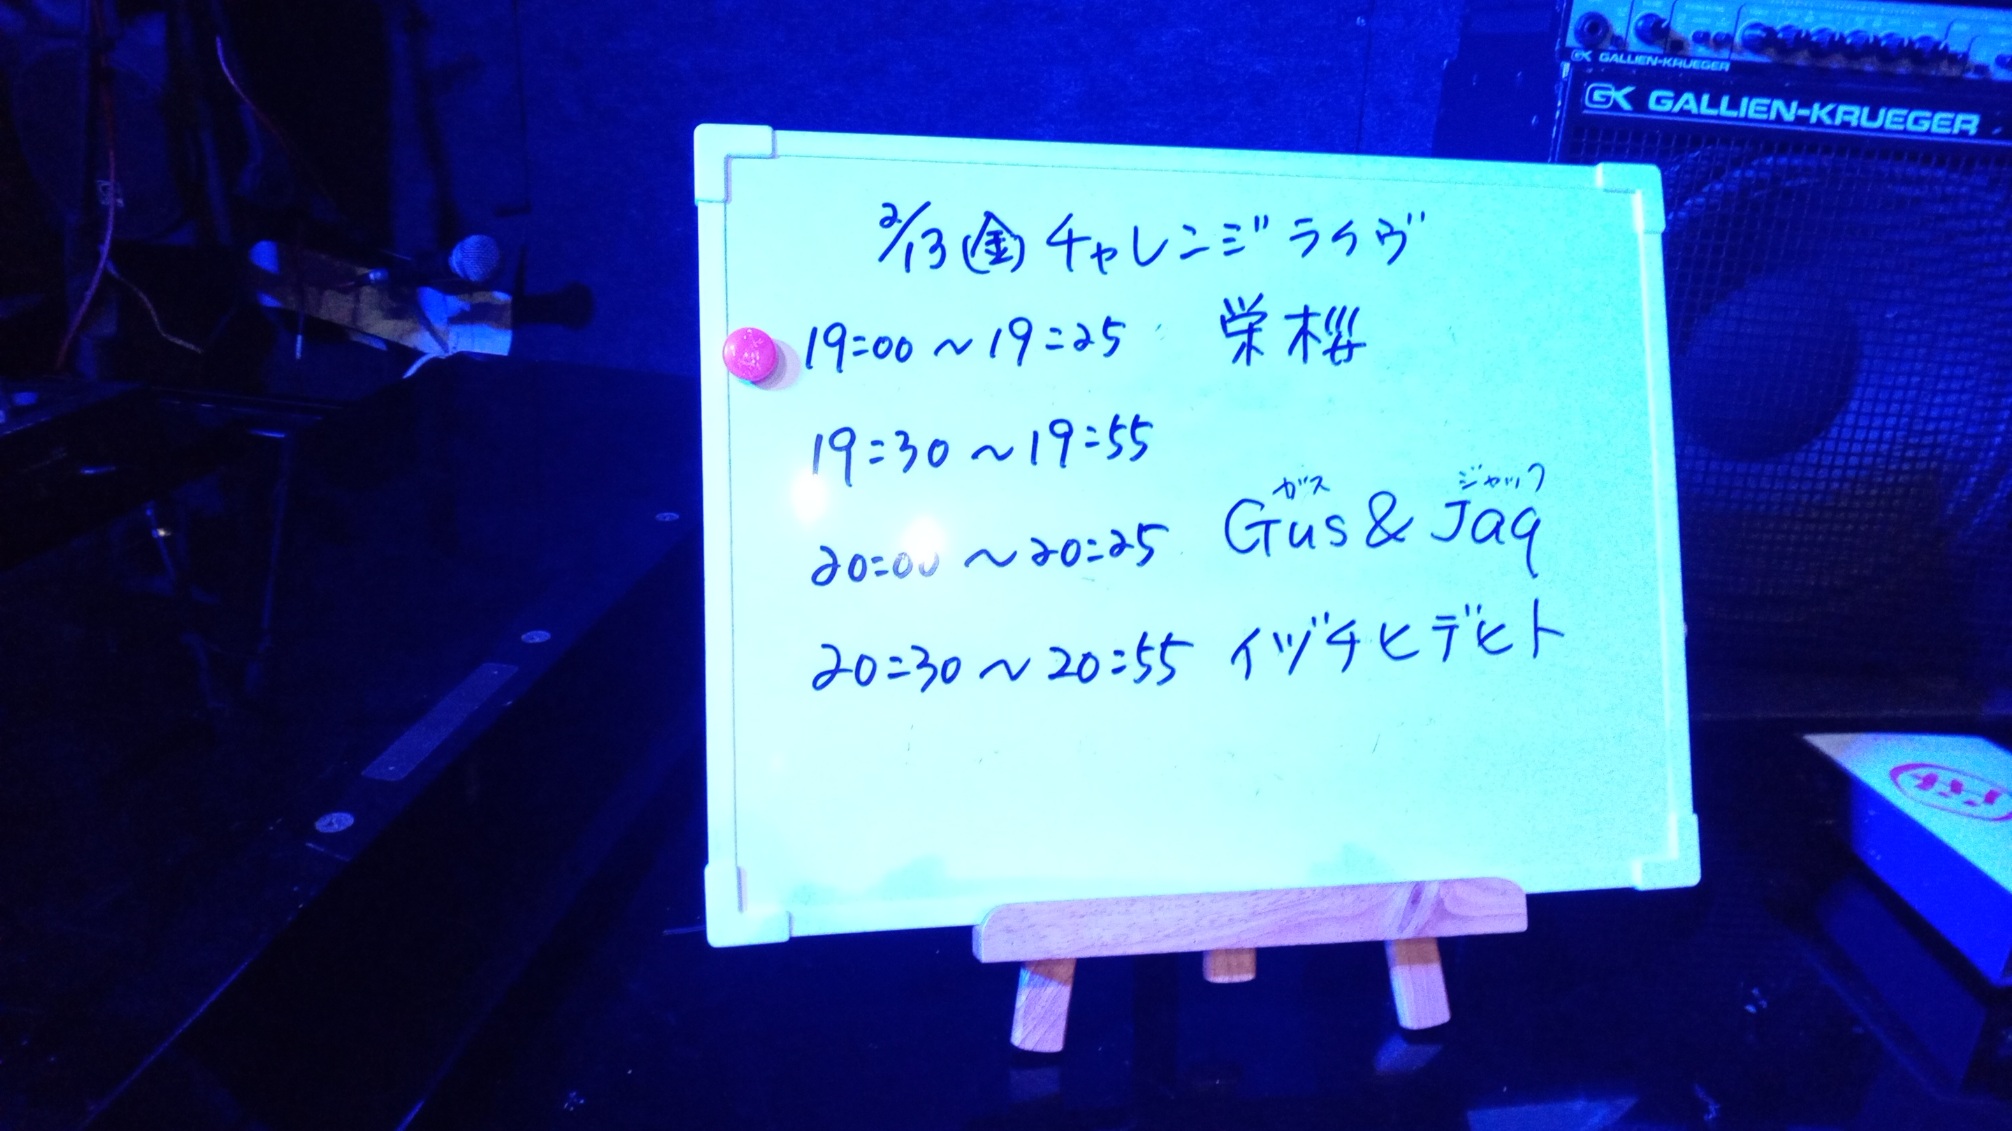 GALLIEN-KRUEGER
GK GALLIEN-KRUEGER
2/13(金)チャレンジライヴ
19:00〜19:25 栄桜
19:30〜19:55
ガス ジャック
20:00〜20:25 Gus & Jaq
20:30〜20:55 イヅチヒデヒト